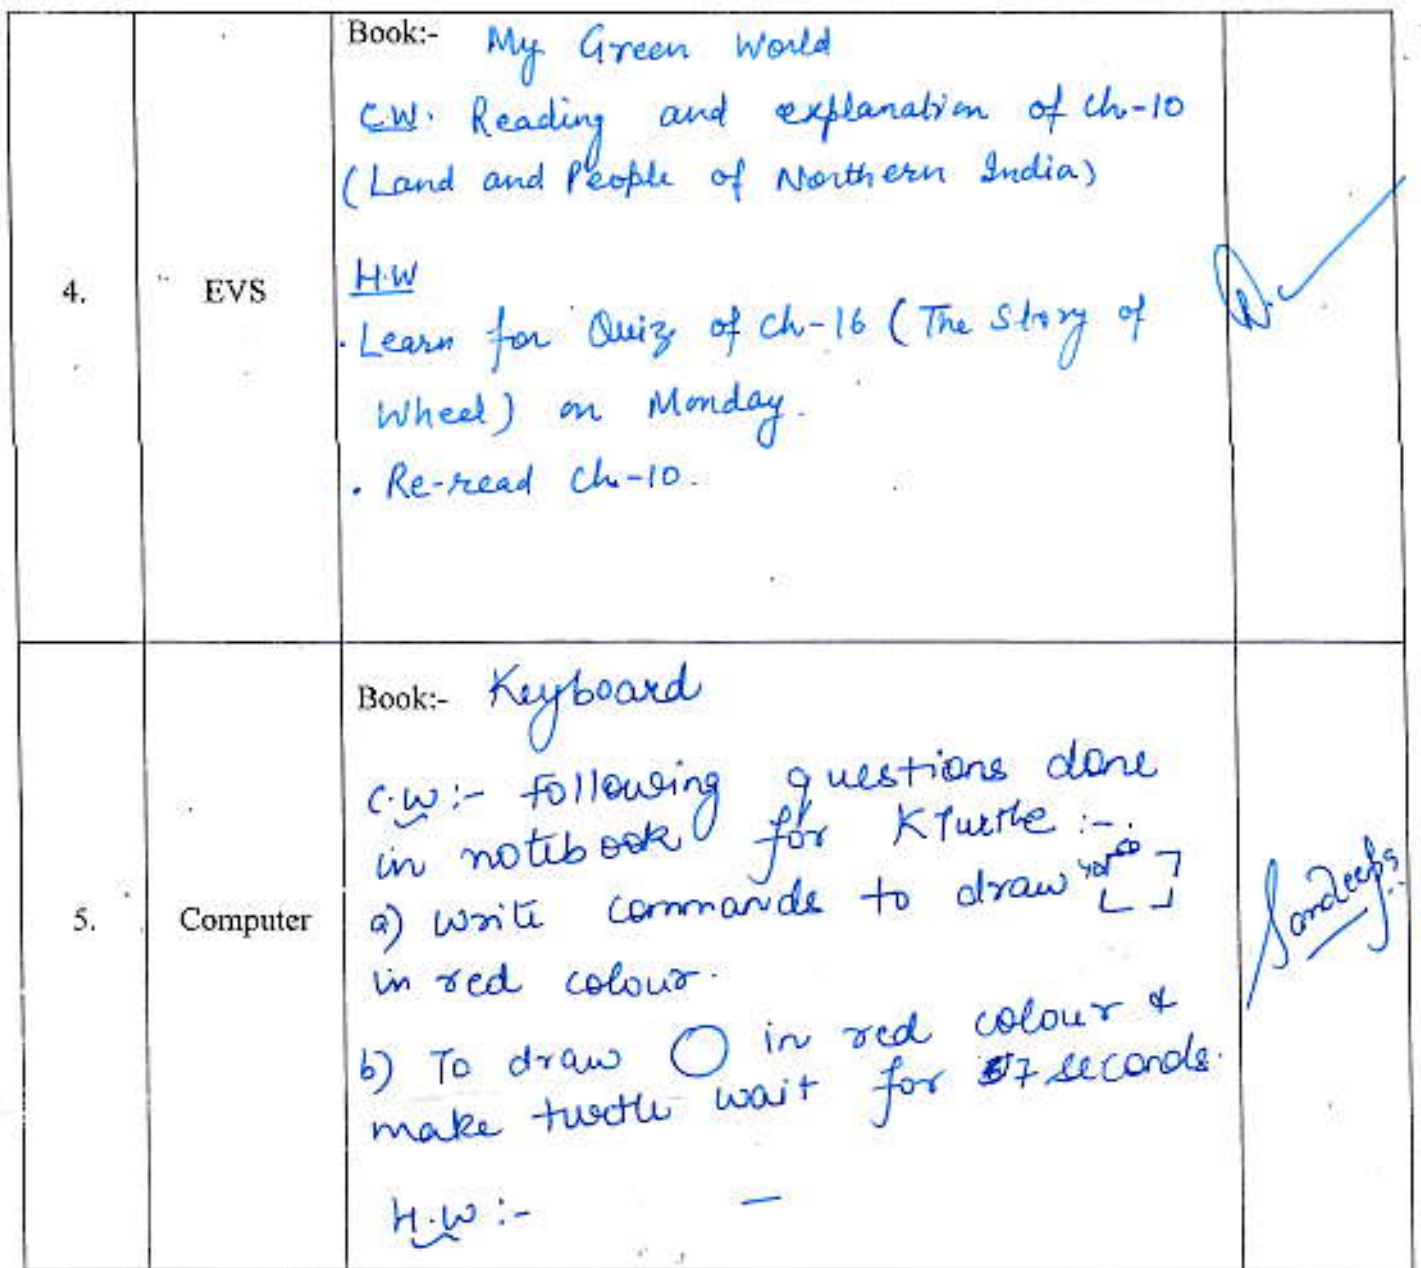 Book:- My Green World
C.W. Reading and explanation of Ch-10
(Land and People of Northern India)
4.
EVS
H.W
. Learn for Quiz of Ch-16 (The Story of
Wheel) on Monday.
. Re-read Ch-10.
Book:- Keyboard
C.W:- Following questions done
in notebook for KTurtle :-
5.
Computer
a) Write commands to draw
in red colour.
b) To draw in red colour &
make turtle wait for 7 seconds.
H.W :- —
Sandeep